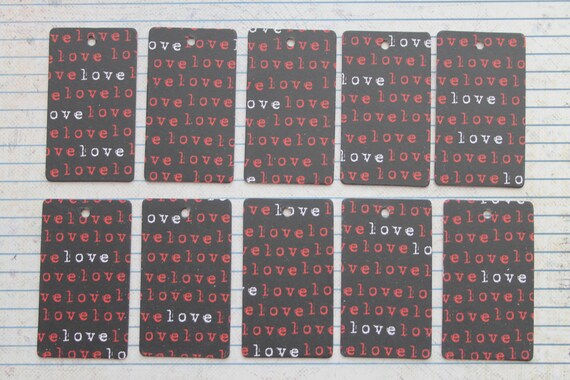 velove lo
love love
ove love l
e love lo
ove love
e love lo
ve love l
love love
ove love
love love
ove love l
love love
e love lo
ve love l
love love
e love lo
love love
ve love l
love love
ove love
love love
e love lo
love love
ve love l
ve love
love love
love love
e love lo
ove love
love love
love love
e love lo
love love
e love lo
ve love l
love love
ve love l
love love
ove love
e love lo
ve love lo
love love
e love lo
love love
ve love l
ve love lo
love love
e love lo
ove love
love love
e love lo
ve love l
love love
love love
ve love l
e love lo
love love
ve love l
love love
e love lo
ve love
love love
ve love l
love love
e love lo
love love